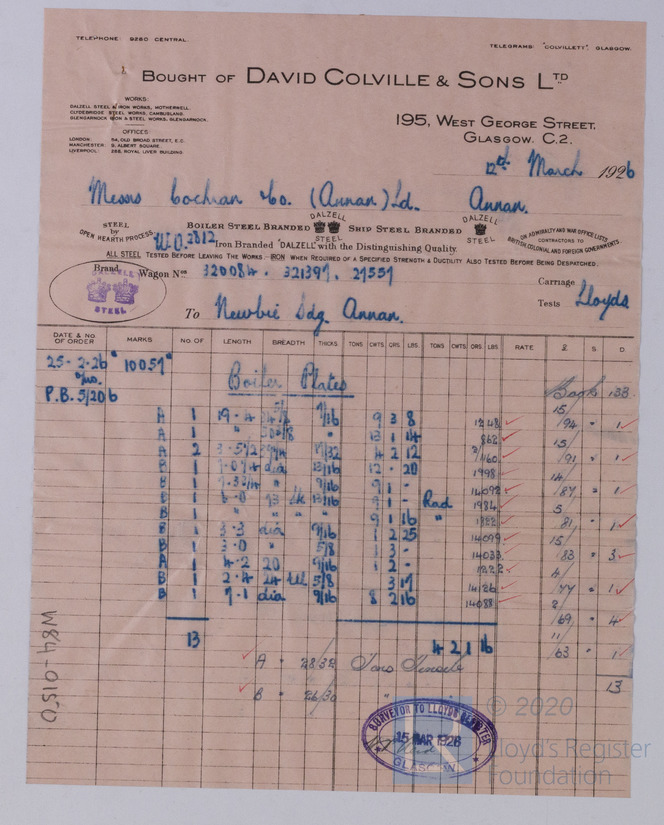 TELEPHONE: 9260 CENTRAL.
TELEGRAMS: "COLVILLETY", GLASGOW.
BOUGHT OF DAVID COLVILLE & SONS LTD
WORKS:
DALZELL STEEL & IRON WORKS, MOTHERWELL.
CLYDEBRIDGE STEEL WORKS, CAMBUSLANG.
GLENGARNOCK IRON & STEEL WORKS, GLENGARNOCK.
OFFICES:
LONDON: 54, OLD BROAD STREET, E.C.
MANCHESTER: 9, ALBERT SQUARE.
LIVERPOOL: 256, ROYAL LIVER BUILDING
195, WEST GEORGE STREET,
GLASGOW. C.2.
12th March 1926
Messrs Cochran & Co. (Annan) Ld. Annan.
STEEL by OPEN HEARTH PROCESS
W.O. 2812
BOILER STEEL BRANDED DALZELL STEEL SHIP STEEL BRANDED DALZELL STEEL
ON ADMIRALTY AND WAR OFFICE LISTS CONTRACTORS TO BRITISH, COLONIAL AND FOREIGN GOVERNMENTS.
Iron Branded "DALZELL" with the Distinguishing Quality.
ALL STEEL TESTED BEFORE LEAVING THE WORKS.- IRON WHEN REQUIRED OF A SPECIFIED STRENGTH & DUCTILITY ALSO TESTED BEFORE BEING DESPATCHED.
Brand DALZELL STEEL
Wagon Nos 320084. 321397. 27557
Carriage
Tests Lloyds
To Newbie Sdg Annan.
DATE & NO OF ORDER MARKS NO. OF LENGTH BREADTH THICKS TONS CWTS QRS. LBS. TONS CWTS QRS LBS RATE £ S. D
25-2-26 "10057"
P.B. 5/206
Boiler Plates
Book 133
A 1 19-4 7/16 9 3 8 1248
A 1 " " 13 1 14 862
A 2 17/32 4 2 12
B 1 dia 13/16 12 - 20 1998
B 1 9/16 9 1 - 14092
B 1 6-0 13/16 9 1 - Rad 1984
B 1 " " " 9 1 16 " 1882
B 1 3-3 dia 9/16 1 2 25 14099
B 1 3-0 " 5/8 1 3 - 14033
A 1 4-2 20 9/16 1 2 - 1222
B 1 2-4 24 5/8 3 17 14126
B 1 7-1 dia 9/16 8 2 16 14088
15/ 94 " 1
15/ 91 " 1
14/ 87 " 1
5/ 81 " 1
15/ 83 " 3
4/ 77 " 1
2/ 69 " 4
11/ 63 " 1
13
13 4 2 1 16
A " 28/32 Tons Tensile
B " 26/30 "
SURVEYOR TO LLOYD'S REGISTER
15 MAR 1926
GLASGOW
W84-0150
© 2020
Lloyd's Register
Foundation